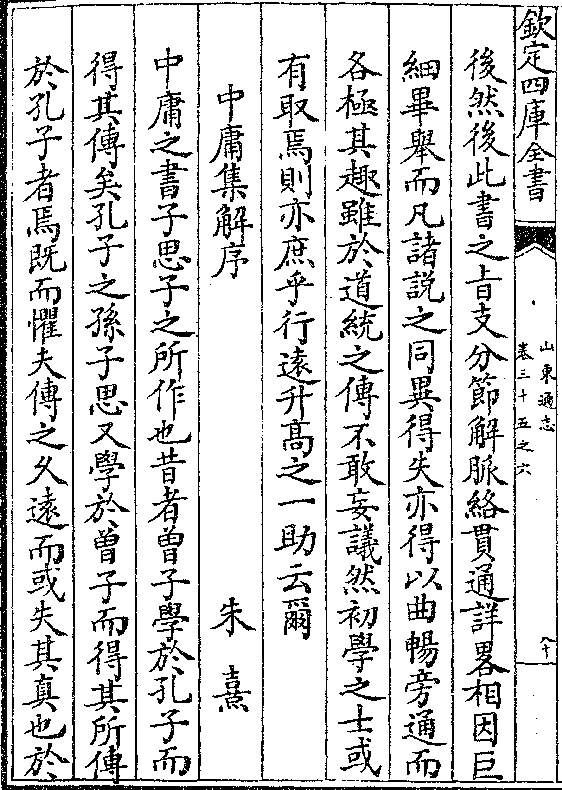 欽定四庫全書
山東通志
卷三十五之六
八十
後然後此書之㫖支分節解脈絡貫通詳畧相因巨
細畢舉而凡諸説之同異得失亦得以曲暢旁通而
各極其趣雖於道統之傳不敢妄議然初學之士或
有取焉則亦庶乎行逺升髙之一助云爾
中庸集解序
朱熹
中庸之書子思子之所作也昔者曽子學於孔子而
得其傳矣孔子之孫子思又學於曽子而得其所傳
於孔子者焉既而懼夫傳之久逺而或失其真也於